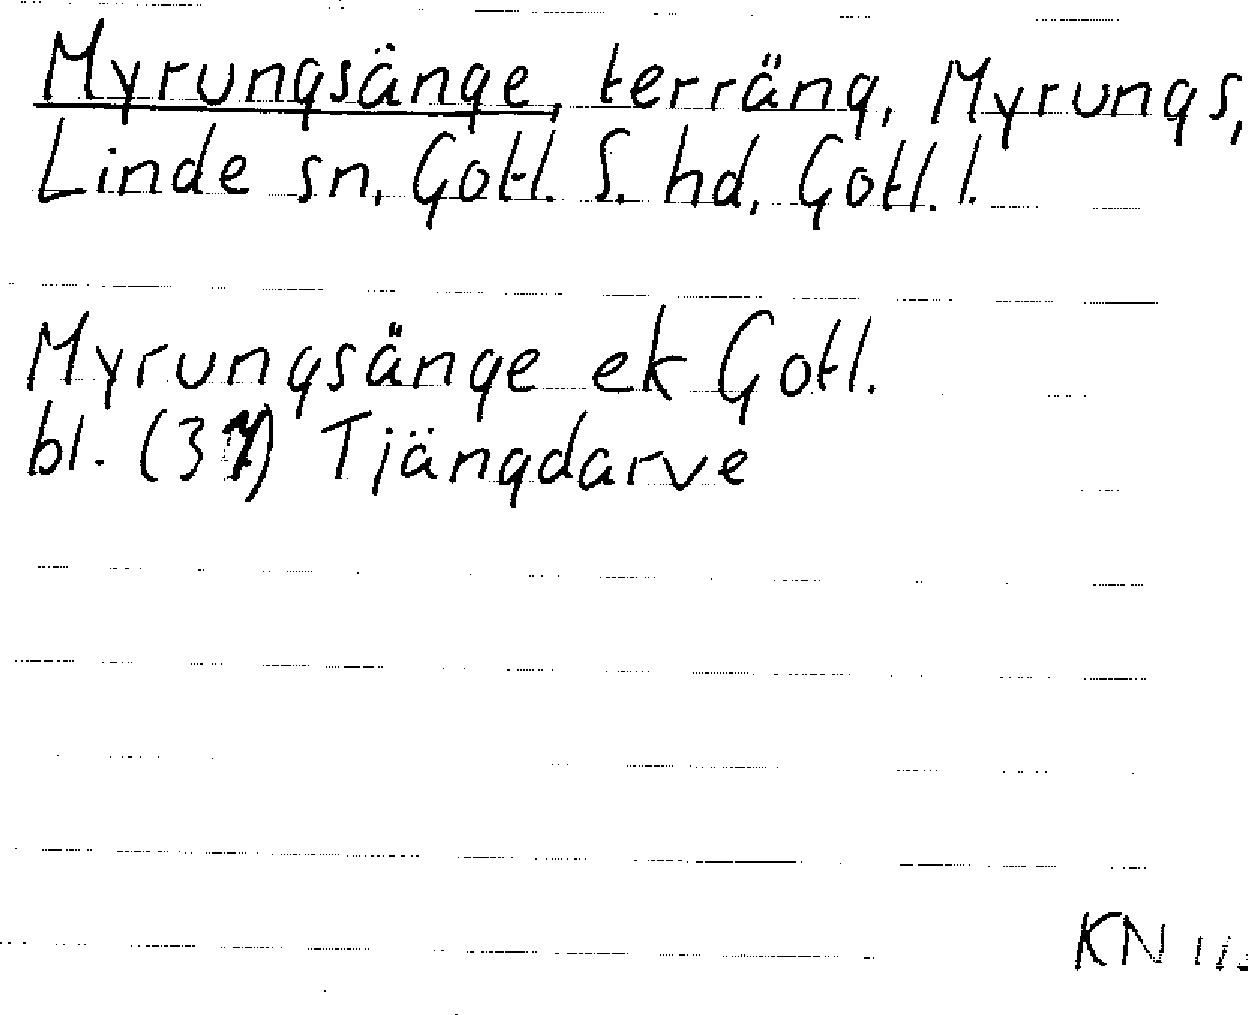 Myrungsänge, terräng, Myrungs,
Linde sn, Gotl. S. hd, Gotl. l.
Myrungsänge ek Gotl.
bl. (37) Tjängdarve
KN